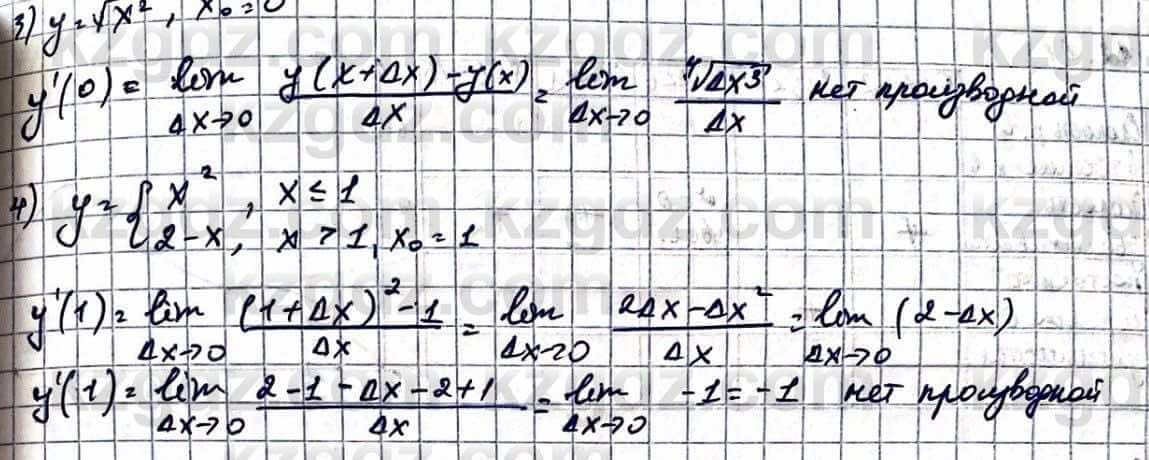 3) y = √x², x₀ = 0
y'(0) = lim Δx→0 (y(x+Δx) - y(x))/Δx = lim Δx→0 ∜(Δx³)/Δx нет производной
4) y = { x², x ≤ 1
2-x, x > 1, x₀ = 1
y'(1) = lim Δx→0 ((1+Δx)² - 1)/Δx = lim Δx→0 (2Δx - Δx²)/Δx = lim Δx→0 (2-Δx)
y'(1) = lim Δx→0 (2-1-Δx-2+1)/Δx = lim Δx→0 -1 = -1 нет производной